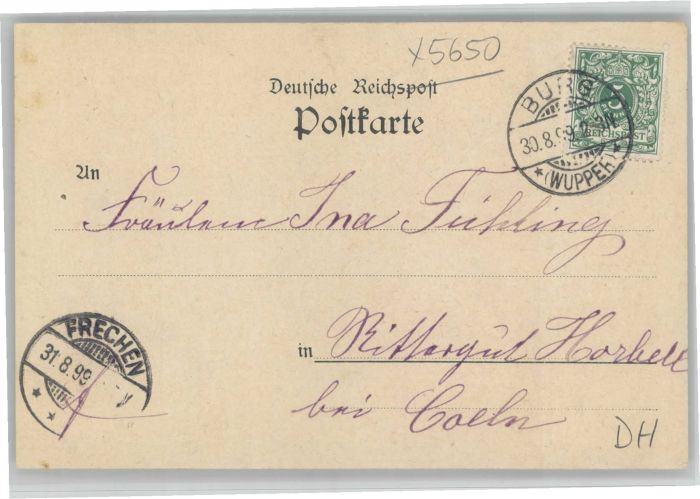 x5650
Deutsche Reichspost
Postkarte
BURG
30.8.99
(WUPPER)
5
REICHSPOST
An
Fräulein Ina Fühling
FRECHEN
31.8.99
in Rittergut Horbell
bei Coeln
DH